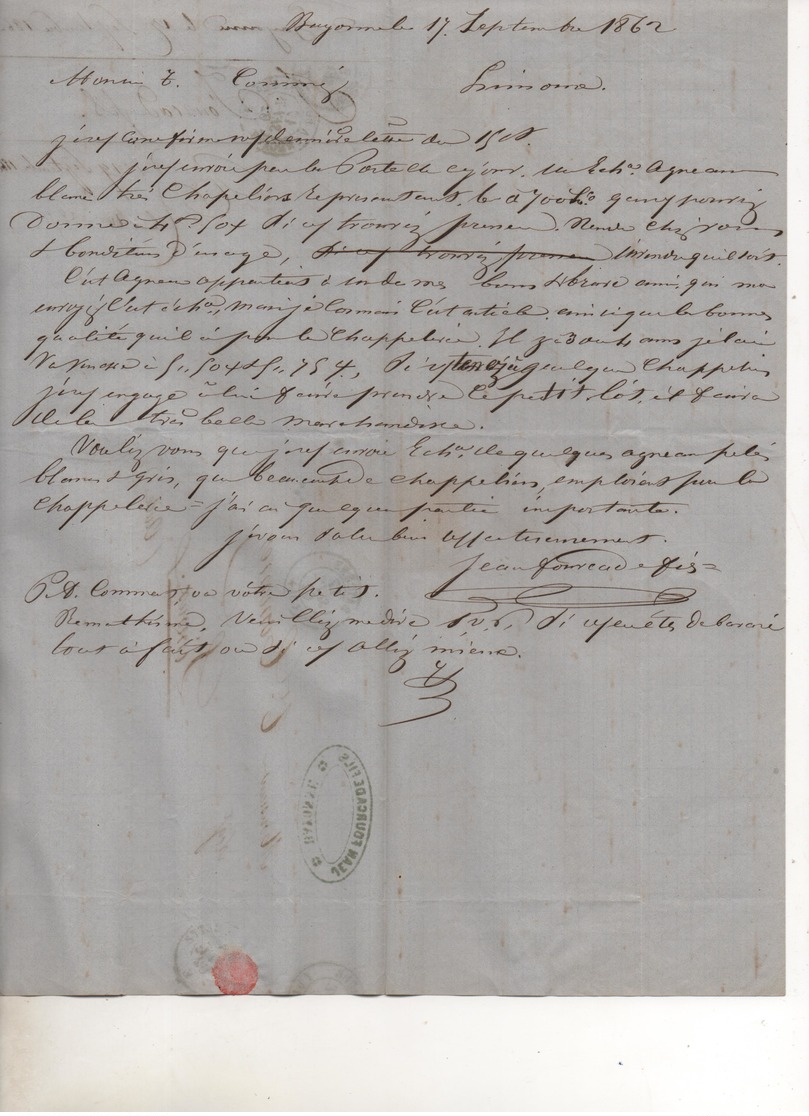 Bayonne le 17. Septembre 1862
Monsieur Comminge Limoux.
je vs confirme ma dernière lettre du 15 ct
je vs envoie par la Poste de ce jour, un Echon Agneau
blanc très Chapeliers Représentant, le d 700 ko que vs pourriez
Donner à 4f 50x si vs trouviez preneur. Rendu chez vous
& conditions d'usage, si vs trouviez preneur
C'est Agneau appartient à un de mes bons amis, qui ma
envoyé c'est échon, mais je connais c'est article ainsi que la bonne
qualité qu'il a pour la Chappelerie. Il y a 3 ou 4 ans je l'ai
Va à 5,, 50x & 5,, 75x, Si vs quelque Chappeliers
je vs engage à lui faire prendre le petit lot, il aura
de la très belle marchandise.
Voulez vous que je vs envoie Echon de quelques agneau pelés
blancs & gris, que beaucoup de chappeliers, emploient pour la
Chappelerie = j'ai en quelque partie importante.
je vous salue bien affectueusement.
Jean Fourcade fils =
P.S. Comment va votre petit.
Veuillez me dire P.v.r, Si vs êtes
tout à fait ou Si vs allez mieux.
JEAN FOURCADE FILS
BAYONNE